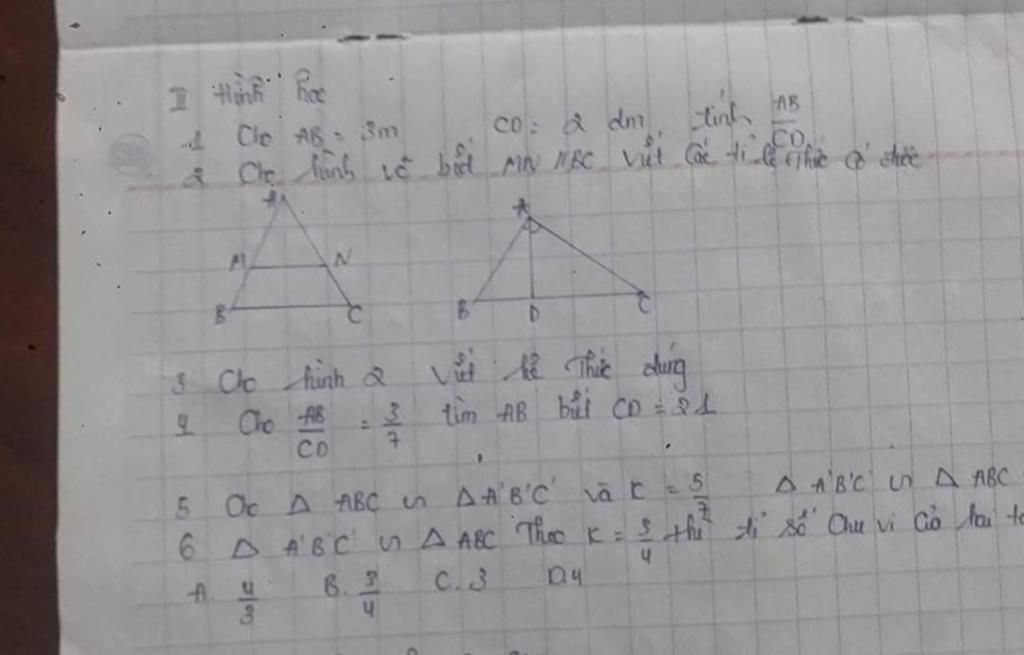 II Hình học
1 Cho AB = 3m CD = 2 dm, tính AB/CD
2 Cho hình vẽ biết MN // BC viết các tỉ lệ thức có được
A A
M N
B C B D C
3 Cho hình 2 viết hệ thức đúng
4 Cho AB/CD = 3/7 tìm AB biết CD = 21
5 ∆ ABC ∽ ∆ A'B'C' và K = 5/7 ∆ A'B'C' ∽ ∆ ABC
6 ∆ A'B'C' ∽ ∆ ABC Theo K = 3/4 thì tỉ số chu vi của hai
A. 4/3 B. 3/4 C. 3 D. 4